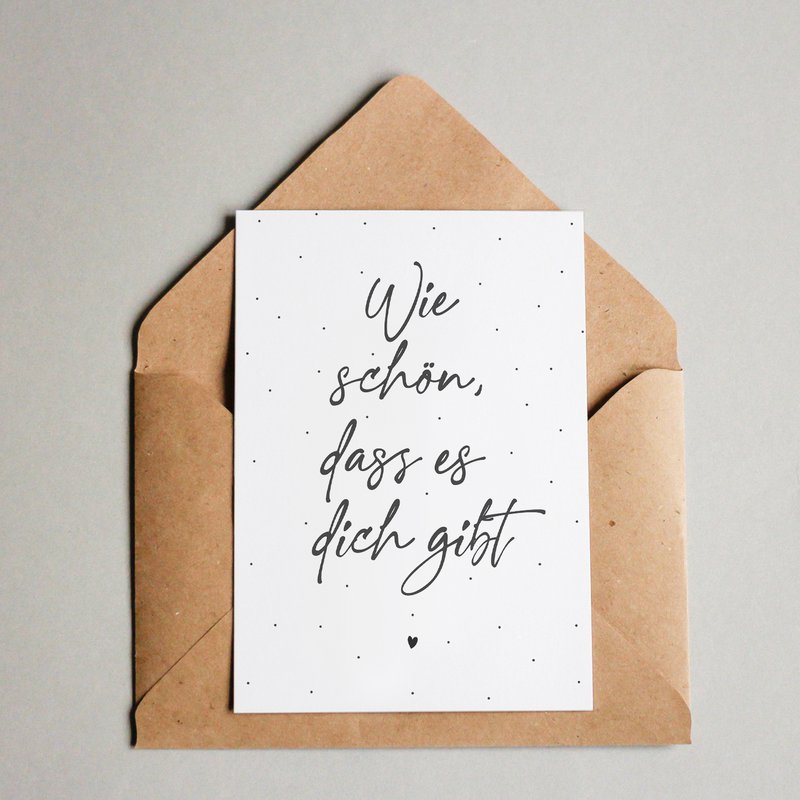 Wie
schön,
dass es
dich gibt